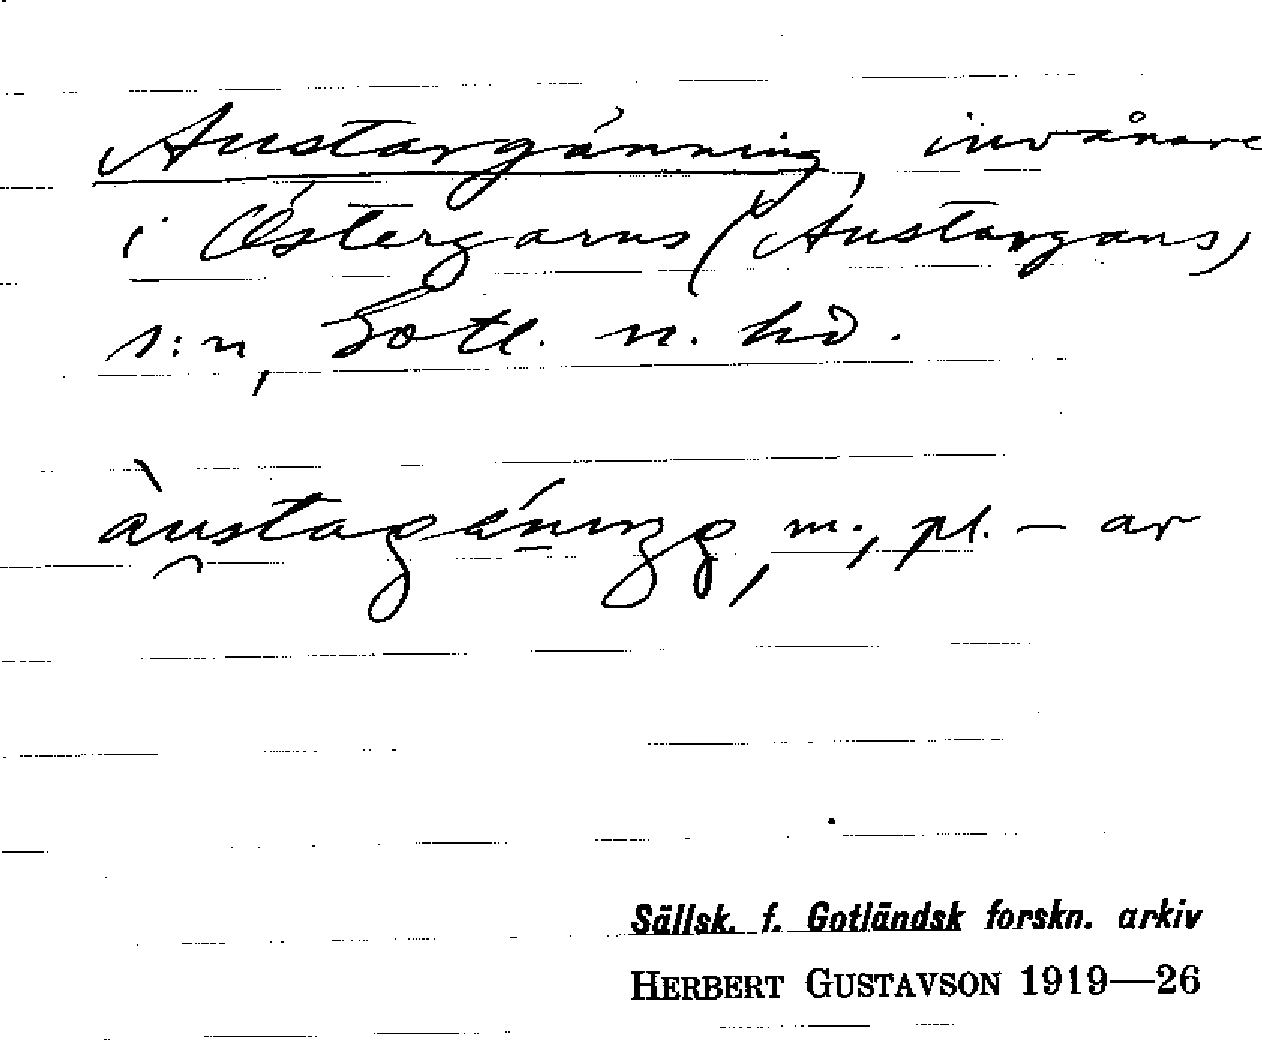 Austargänning, invånare
i Östergarns (Austargans)
s:n, Gotl. n. hd.
àustagáning, m., pl. – ar
Sällsk. f. Gotländsk forskn. arkiv
HERBERT GUSTAVSON 1919—26